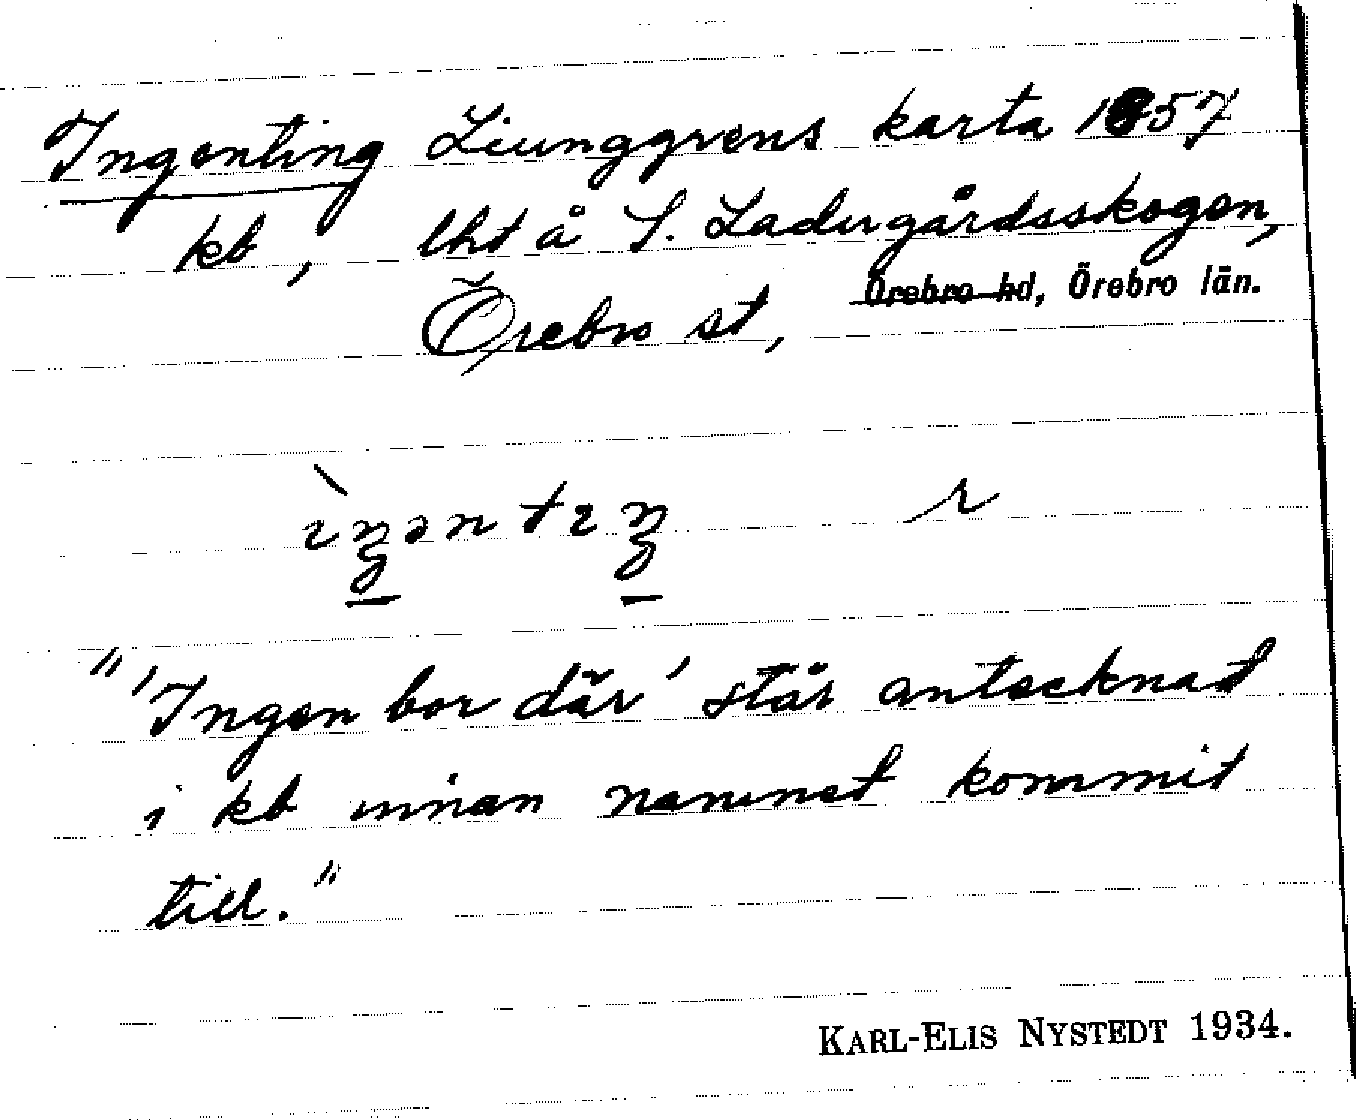 Ingenting Liunggrens karta 1857
kb, lht å S. Ladugårdsskogen,
Örebro st, Örebro hd, Örebro län.
ìŋəntıŋ r
"'Ingen bor där' står antecknat
i kb innan namnet kommit
till."
KARL-ELIS NYSTEDT 1934.